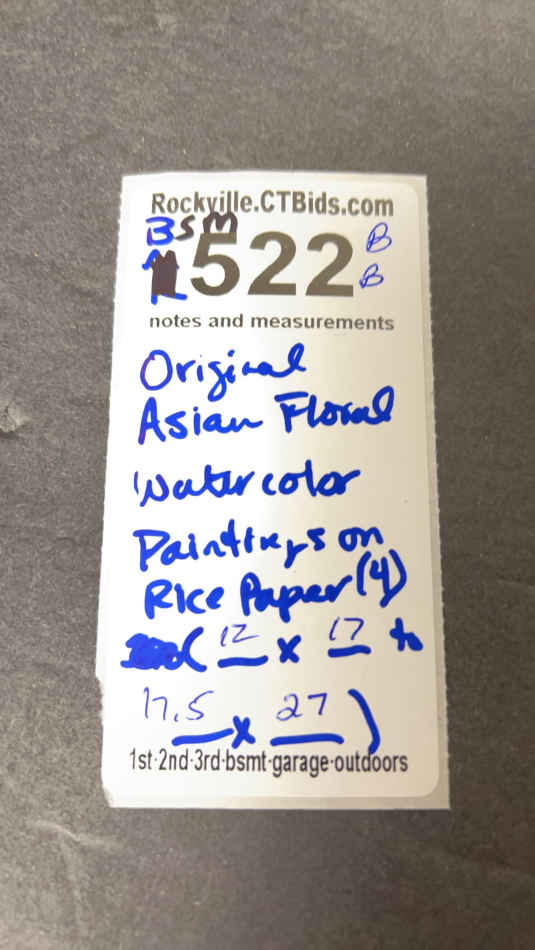 Rockville.CTBids.com
BSM
522 B
B
notes and measurements
Original
Asian Floral
Watercolor
Paintings on
Rice Paper (4)
( 12 x 17 to
17.5 x 27 )
1st-2nd-3rd-bsmt-garage-outdoors